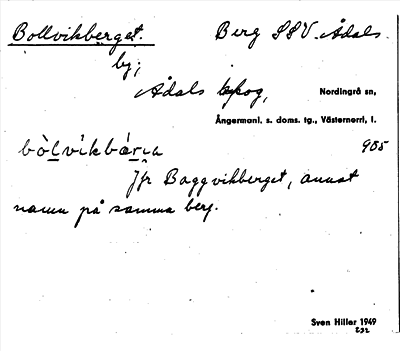 Bollvikberget. Berg SSV. Ådals
by;
Ådals skog, Nordingrå sn,
Ångermanl. s. doms. tg., Västernorrl. l.
985
Jfr Baggvikberget, annat
namn på samma berg.
Sven Hiller 1949
232